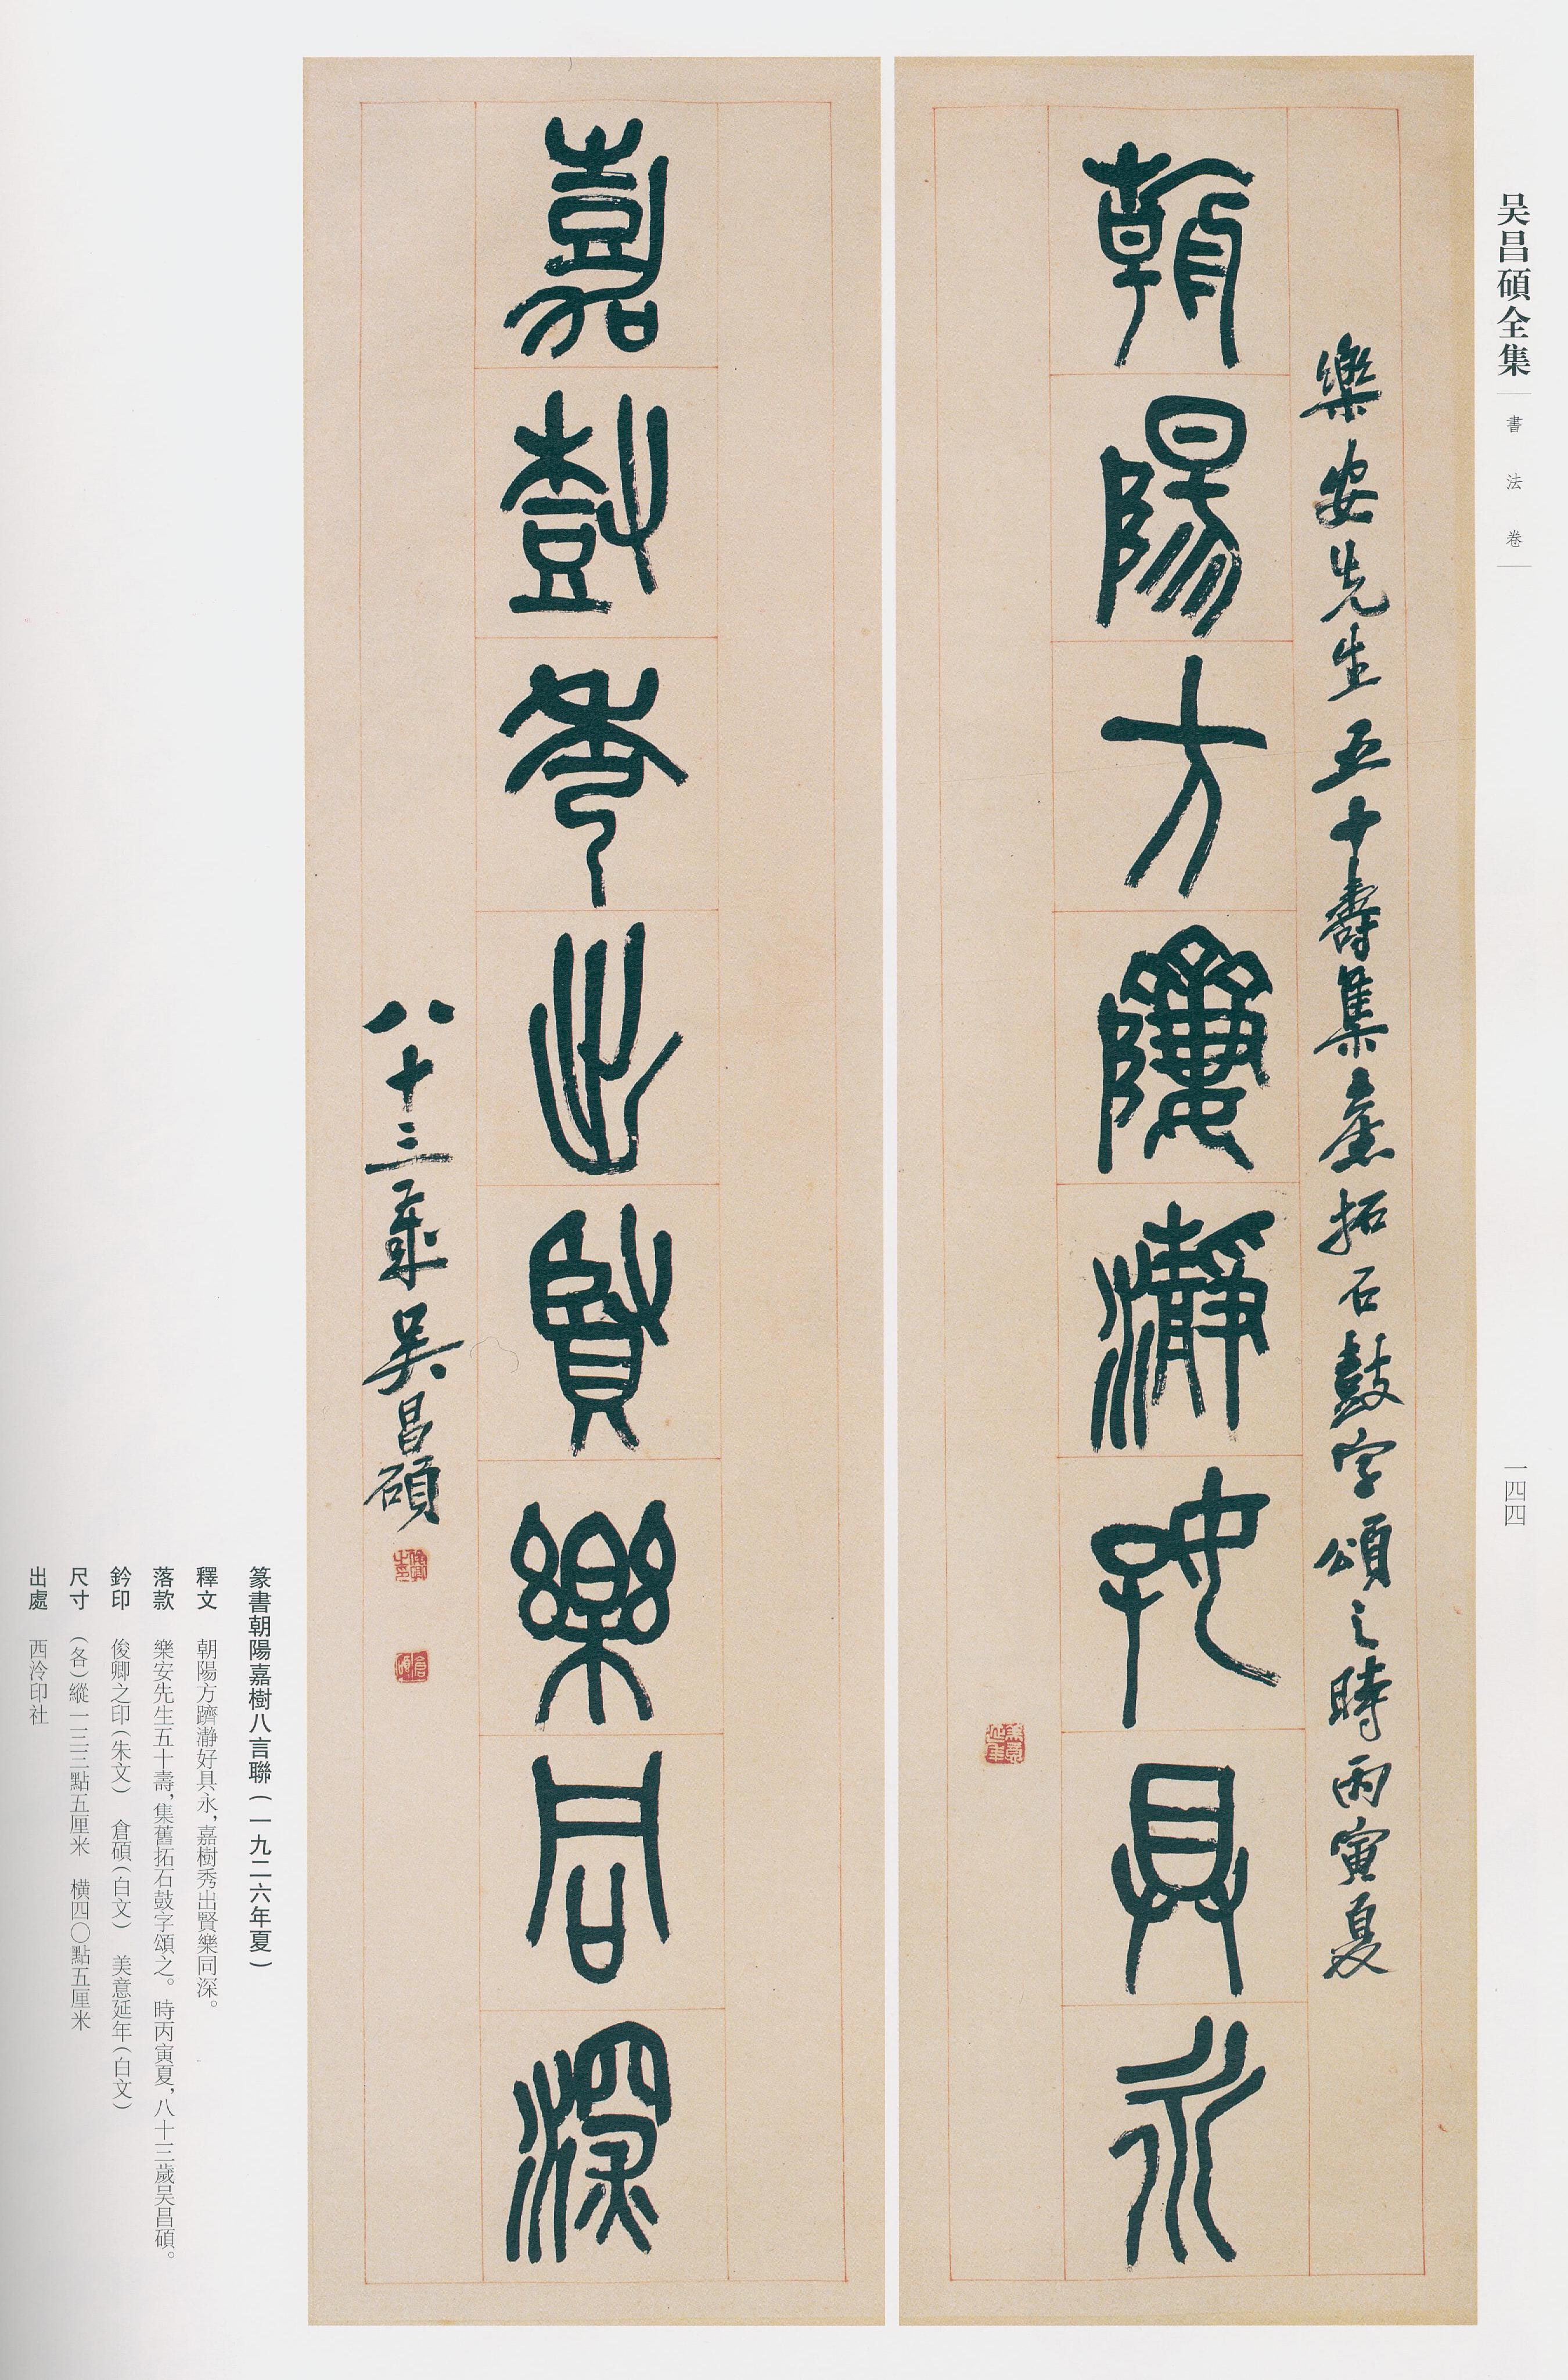 吴昌碩全集
書法卷
一四四
樂安先生五十壽集舊拓石鼓字頌之時丙寅夏
朝陽方隮瀞好具永
美意延年
嘉樹秀出賢樂同深
八十三歲吴昌碩
俊卿之印
倉碩
篆書朝陽嘉樹八言聯（一九二六年夏）
釋文　朝陽方躋瀞好具永，嘉樹秀出賢樂同深。
落款　樂安先生五十壽，集舊拓石鼓字頌之。時丙寅夏，八十三歲吴昌碩。
鈐印　俊卿之印（朱文）　倉碩（白文）　美意延年（白文）
尺寸　（各）縱一三三點五厘米　橫四〇點五厘米
出處　西泠印社